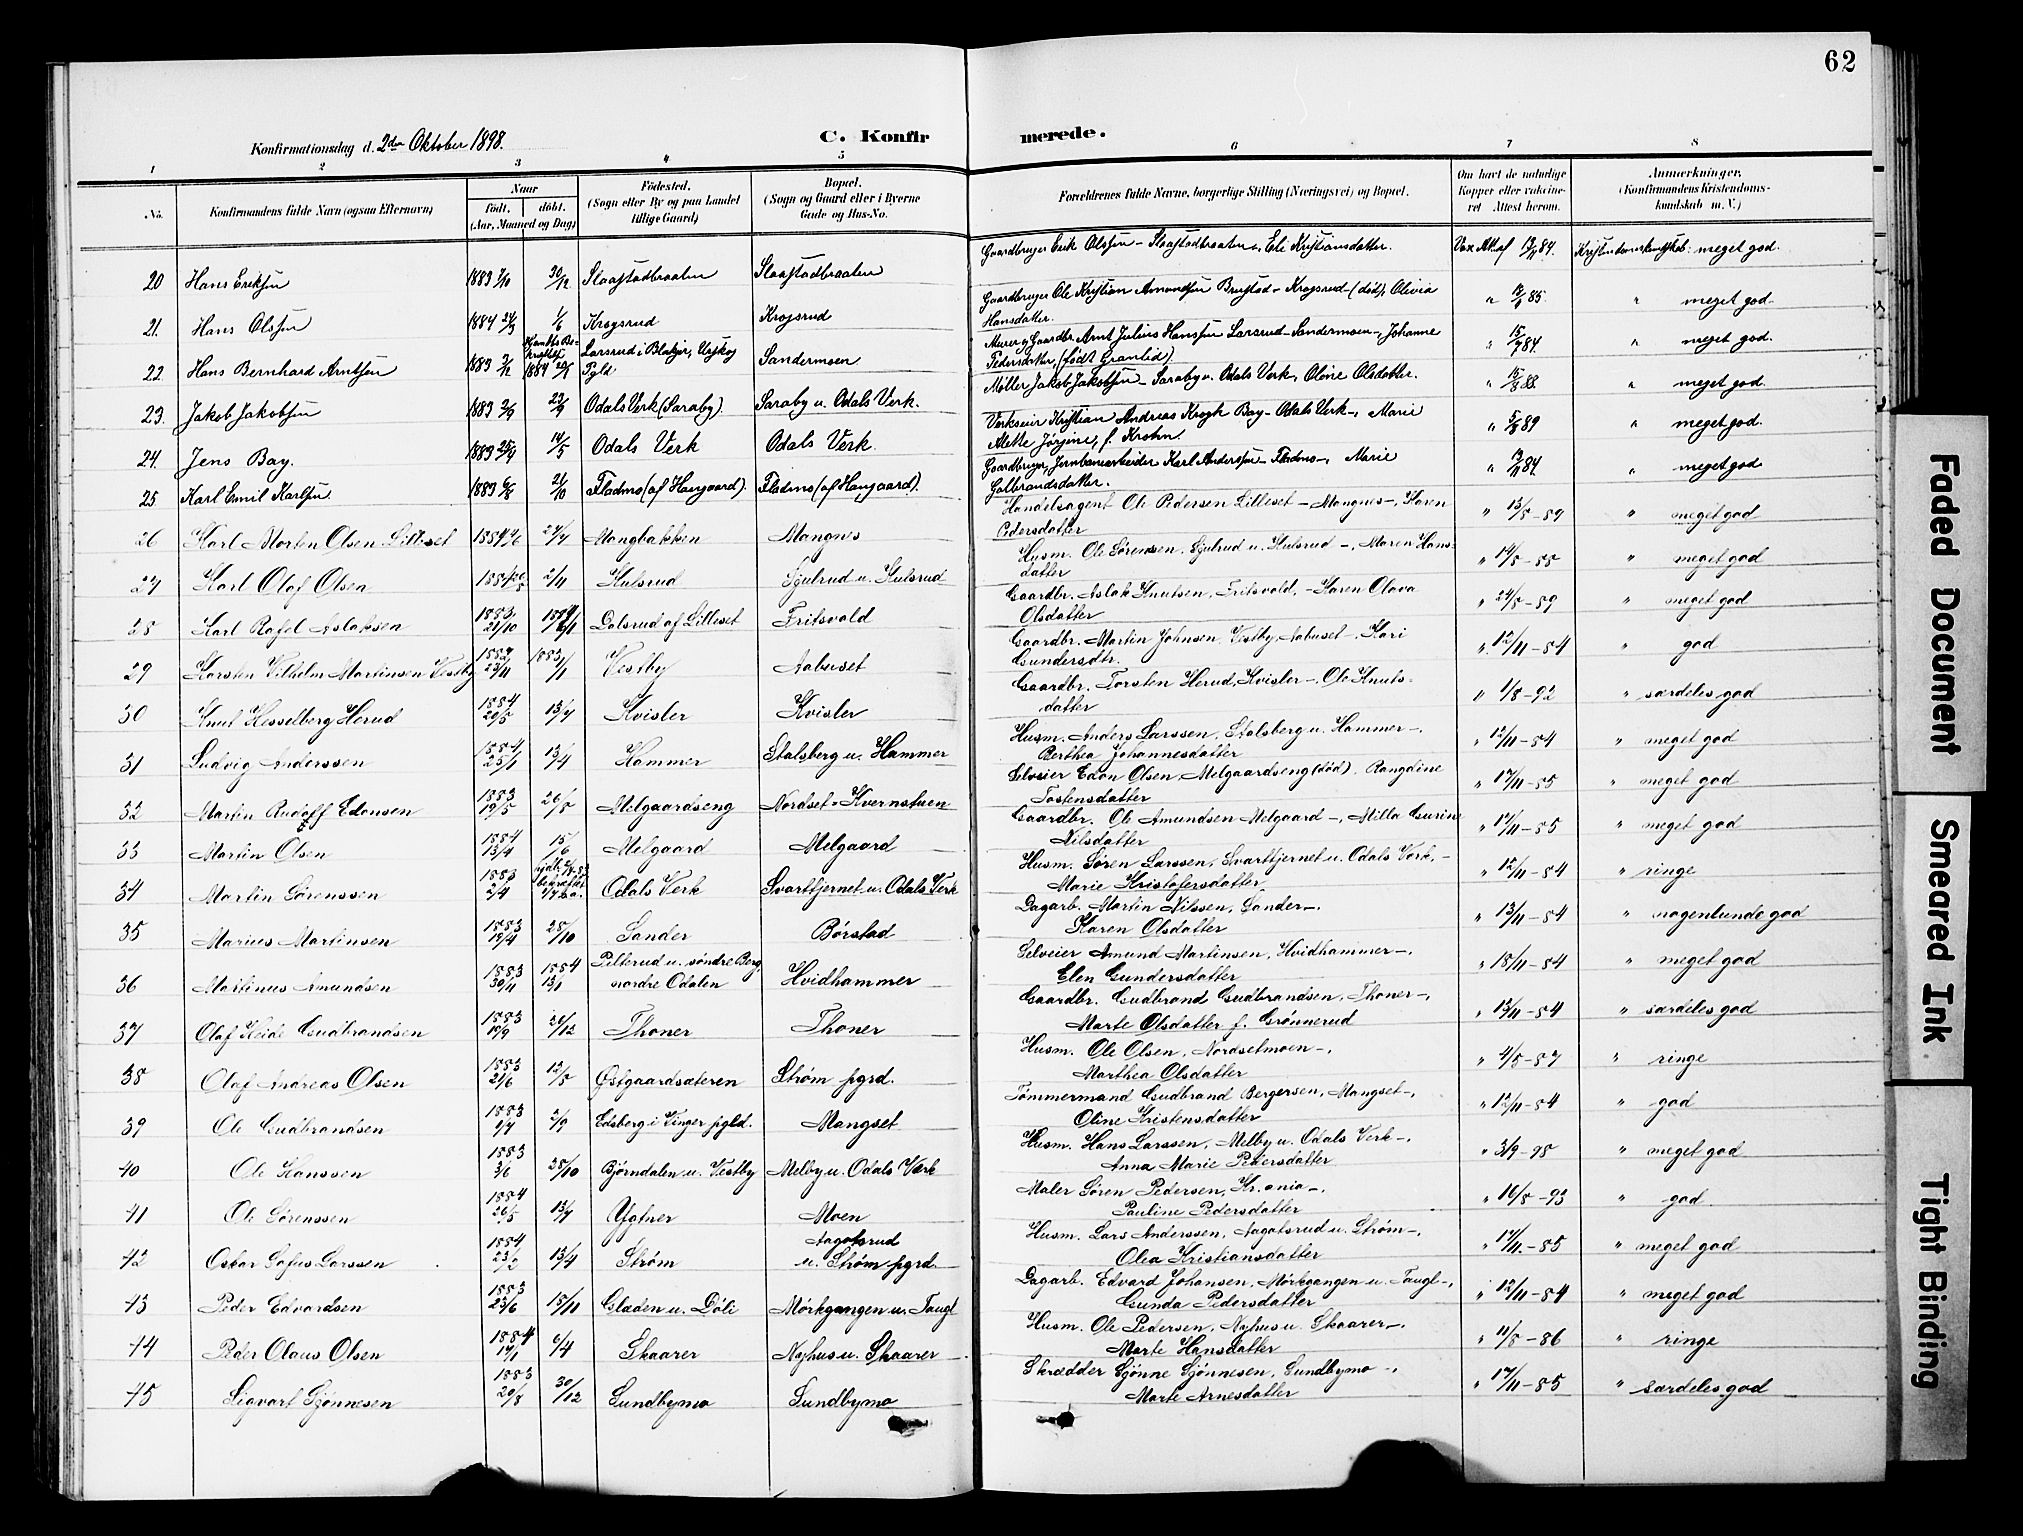 62
Konfirmationsdag d. 2den Oktober 1898.
C. Konfirmerede.
1 2 3 4 5 6 7 8
No. Konfirmandens fulde Navn (ogsaa Efternavn) Naar født, døbt. (Aar, Maaned og Dag) Fødested. (Sogn eller By og paa Landet tillige Gaard) Bopæl. (Sogn og Gaard eller i Byerne Gade og Hus-No. Forældrenes fulde Navne, borgerlige Stilling (Næringsvei) og Bopæl. Om havt de naturlige Kopper eller vaccineret. Attest herom. Anmerkninger, (Konfirmandens Kristendomskundskab m. V.)
20 Hans Eriksen 1883 7/10 30/12 Slaastadbraaten Slaastadbraaten Gaardbruger Erik Olssen - Slaastadbraaten, Eli Kristiansdatter. meget god.
21. Hans Olssen 1884 24/3 1/6 Krogsrud Krogsrud Gaardbruger Ole Kristian Amundsen Brustad - Krogsrud - (død), Olivia Hansdatter. " meget god.
22. Hans Bernhard Arntsen 1883 Larsrud i Blakjer, Urskog Pgld Sandermoen Murer og Gaardbr. Arnt Julius Hanssen Larsrud - Sandermoen -, Johanne Pedersdatter (født Granlid) " 15/7 84. " meget god.
23. Jakob Jakobsen 1883 2/9 23/9 Odals Verk (Saraby) Saraby u. Odals Verk. Møller Jakob Jakobsen - Saraby u. Odals Verk, Oline Olsdatter. " meget god.
24. Jens Bay. 1883 25/4 14/5 Odals Verk Odals Verk. Verkseier Kristian Andreas Krogh Bay - Odals Verk -, Marie Alette Jørgine, f. Krohn. " 5/8 89 " meget god.
25. Karl Emil Karlsen 1883 6/8 21/10 Fladmo (af Haugaard). Fladmo (af Haugaard). Gaardbruger, Jernbanearbeider Karl Anderssen - Fladmo -, Marie Gulbrandsdatter. " meget god
26 Karl Morten Olsen Lilleset 1884 4/6 27/7 Mangbakken Mangnes Handelsagent Ole Pedersen Lilleset - Mangnes -, Karen Pedersdatter " 13/8 - 89 " meget god
27 Karl Olaf Olsen 2/11 Hulsrud Gjulrud u. Hulsrud Husm. Ole Sørensen, Gjulrud u. Hulsrud -, Maren Hansdatter " 14/8 - 85 " meget god
28 Karl Rafel Aslaksen 1883 21/10 Dalsrud af Lilleset Fritsvold Gaardbr. Aslak Knutsen, Fritsvold, - Karen Olava Olsdatter " 24/8 - 89 " meget god
29 Karsten Vilhelm Martinsen Vestby 1882 23/11 1883 1/1 Vestby Aabuset Gaardbr. Martin Johnsen Vestby, Aabuset, Kari Gundersdtr. " 12/11 - 84 " god
30 Knut Hesselberg Herud 1884 20/5 13/7 Kvisler Kvisler Gaardbr. Torsten Herud, Kvisler -, Ole Knutsdatter " 1/8 - 92 " særdeles god
31 Ludvig Anderssen 1884 25/1 13/4 Hammer Stalsberg u. Hammer Husm. Anders Larssen, Stalsberg u. Hammer -, Berthea Johannesdatter " 12/11 - 84 " meget god
32 Martin Rudolf Edonsen 1883 19/5 26/8 Melgaardseng Nordset - Kvernstuen Selveier Edon Olsen, Melgaardseng (død). Rangdine Tostensdatter " 17/11 - 85 " meget god
33 Martin Olsen 1884 13/4 15/6 Melgaard Melgaard Gaardbr. Ole Amundsen Melgaard -, Milla Gurine Nilsdatter " 17/11 - 85 " meget god
34 Martin Sørenssen 1883 2/4 Odals Verk Svarttjernet u. Odals Verk Husm. Søren Larssen, Svarttjernet u. Odals Verk, - Marie Kristofersdatter " 12/11 - 84 " ringe
35 Marius Martinsen 1883 19/4 28/10 Sander Børstad Dagarb. Martin Nilssen, Sander -. Karen Olsdatter " 13/11 - 84 " nogenlunde god
36 Martinus Amundsen 1883 30/11 1884 13/1 Pilterud u. søndre Berg, nordre Odalen Hvidhammer Selveier Amund Martinsen, Hvidhammer -, Elen Gundersdatter " 18/11 - 84 " meget god
37 Olaf Heide Gudbrandsen 1883 19/9 26/12 Thoner Thoner Gaardbr. Gudbrand Gudbrandsen, Thoner -, Marte Olsdatter f. Grønnerud " 12/11 - 84 " særdeles god
38 Olaf Andreas Olsen 1883 21/6 12/8 Østgaardsæteren Strøm pgrd. Husm. Ole Olsen, Nordsetmoen -, Marthea Olsdatter " 4/8 - 87 " ringe
39 Ole Gudbrandsen 1883 1/7 2/9 Edsberg i Vinger pgld. Mangset Tømmermand Gudbrand Bergersen, Mangset -, Oline Kristensdatter " 12/11 - 84 " god
40 Ole Hanssen 1883 3/6 28/10 Bjørndalen u. Vestby Melby u. Odals Værk Husm. Hans Larssen, Melby u. Odals Verk -. Anna Marie Pedersdatter " 3/9 - 98 " meget god
41 Ole Sørenssen 1884 26/5 13/7 Ygtner Moen Maler Søren Pedersen, Kr.ania -, Pauline Pedersdatter " 16/8 - 93 " god
42 Oskar Sofus Larssen 1884 23/2 13/4 Strøm Aagotsrud u. Strøm pgrd. Husm. Lars Anderssen, Aagotsrud u. Strøm -, Olea Kristiansdatter " 17/11 - 85 " meget god
43 Peder Edvardsen 1883 23/6 18/11 Gladen u. Døli Mørkgangen u. Taugl Dagarb. Edvard Johansen, Mørkgangen u. Taugl -, Gunda Pedersdatter " 12/11 - 84 " meget god
44 Peder Olaus Olsen 1884 19/1 6/4 Skaarer Nyhus u. Skaarer Husm. Ole Pedersen, Nyhus u. Skaarer -. Marte Hansdatter " 11/8 - 86 " ringe
45 Sigvart Gjønnesen 1883 20/8 30/12 Sundbymo Sundbymo Skrædder Gjønne Gjønnesen, Sundbymo -, Marte Arnesdatter " 17/11 - 85 " særdeles god
Faded Document
Smeared Ink
Tight Binding